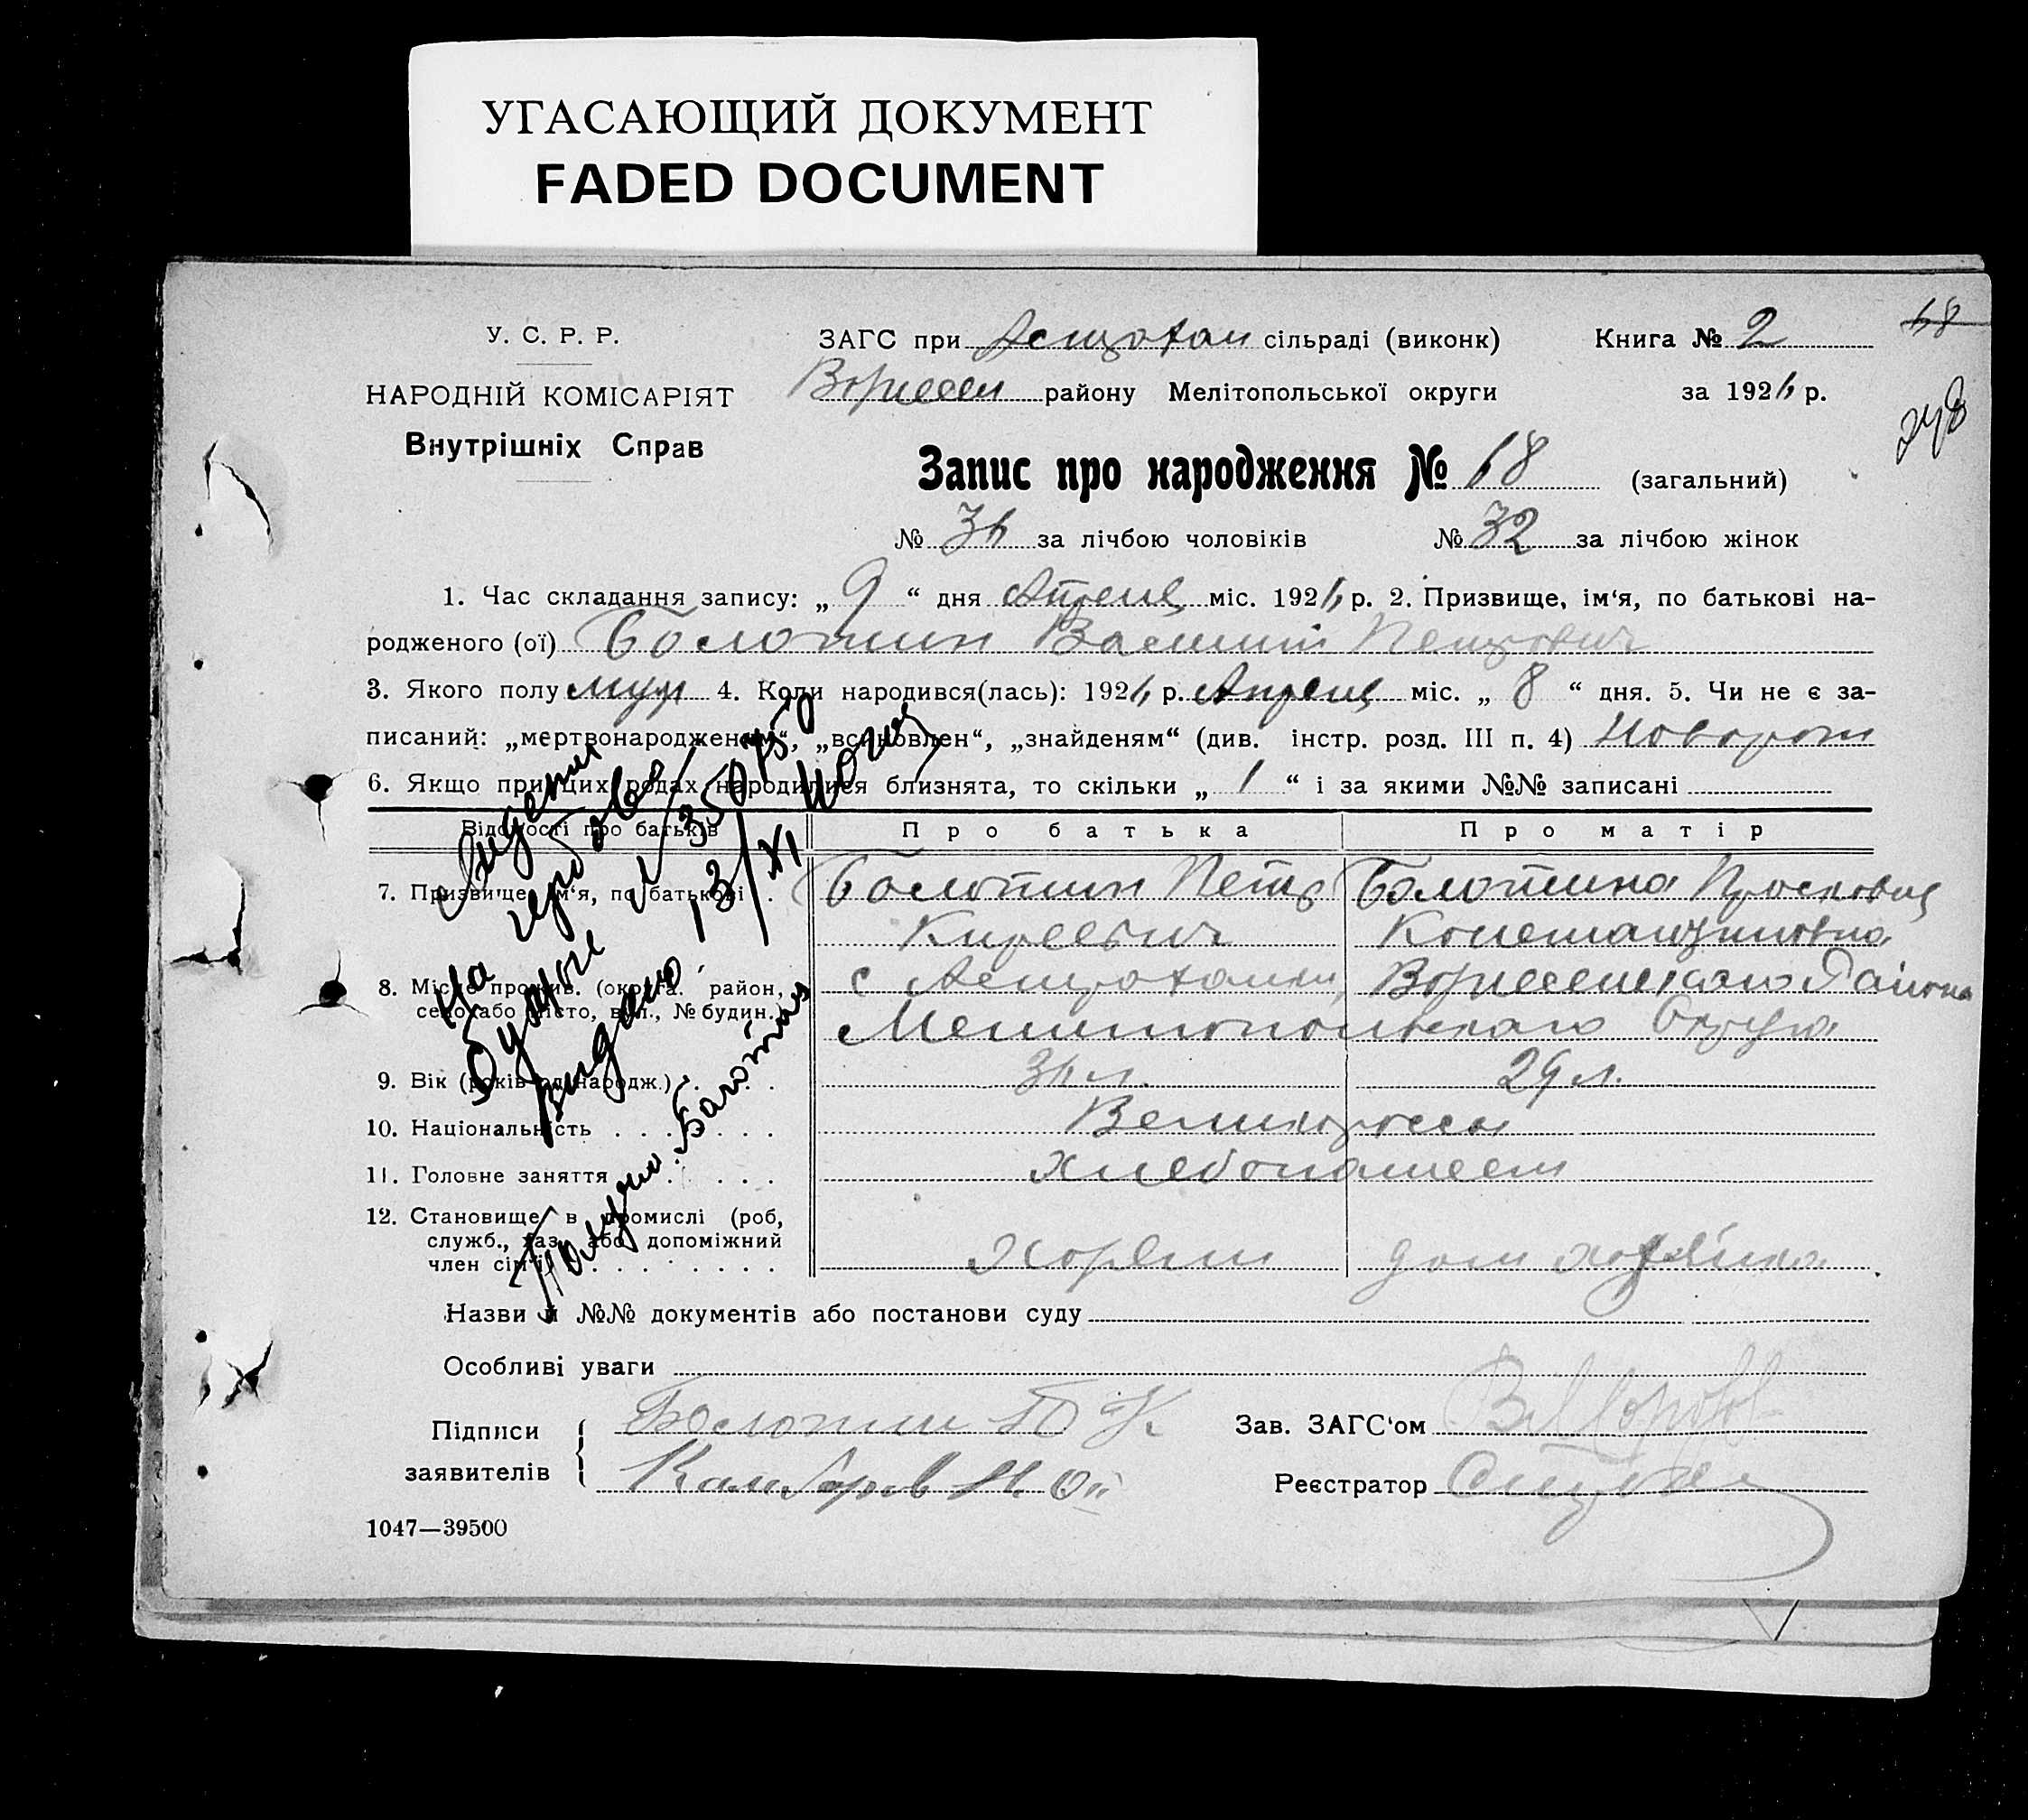 УГАСАЮЩИЙ ДОКУМЕНТ
FADED DOCUMENT
У. С. Р. Р.
НАРОДНІЙ КОМІСАРІЯТ
Внутрішніх Справ
ЗАГС при Астрохан сільраді (виконк)
районy Мелітопольської округи
Книга № 2
за 1926 р.
68
248
Запис про народження № 68 (загальний)
№ 36 за лічбою чоловіків № 32 за лічбою жінок
1. Час складання запису: „ 9 “ дня Апреля міс. 1926 р. 2. Призвище, ім‘я, по батькові на-
родженого (ої) Болотин Василий Петрович
3. Якого полу муж 4. Коли народився(лась): 1926 р. Апреля міс. „ 8 “ дня. 5. Чи не є за-
писаний: „мертвонародженям“, „встановлен“, „знайденям“ (див. інстр. розд. III п. 4) Новорож
6. Якщо при цих родах народилися близнята, то скільки „ 1 “ і за якими №№ записані
Відомості про батьків Про батька Про матір
7. Призвище, ім‘я, по батькові . Болотин Петр Болотина Просковия
Киреевич Константиновна
8. Місце прожив. (округа. район, с Астроханки, Района
село або місто, вул., № будин.) Мелитопольскаго Округа
9. Вік (років од народж.) . . . . 36 л. 29 л.
10. Національність . . . . . . . Великороссы
11. Головне заняття . . . . . . Хлебопашеством
12. Становище в промислі (роб,
служб., хаз. або допоміжний
член сім‘ї) . . . . . . . . . . Хозяин дом хозяйка
Назви й №№ документів або постанови суду
Особливі уваги
Підписи
заявителів
Болотин П К
Зав. ЗАГС‘ом
Реєстратор
1047—39500
На
выдано
13/XI
Получил Балотин